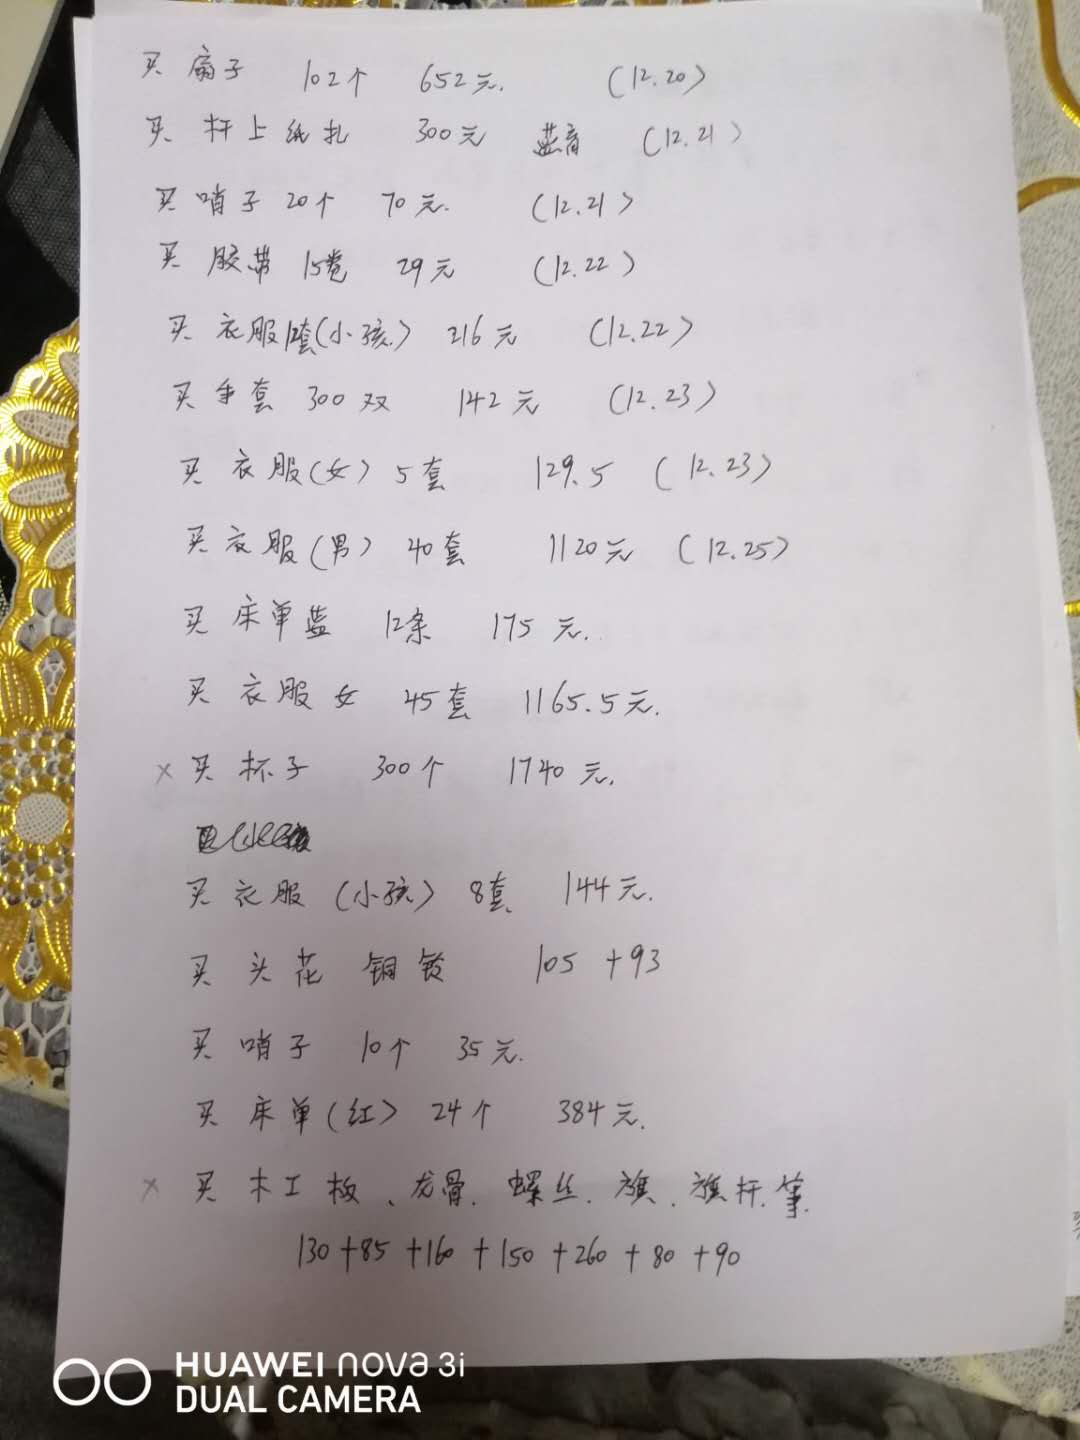 买扇子 102个 652元. (12.20)
买杆上纸扎 300元 (12.21)
买哨子20个 70元. (12.21)
买胶带 15卷 29元 (12.22)
买衣服12套(小孩) 216元 (12.22)
买手套 300双 142元 (12.23)
买衣服(女) 5套 129.5 (12.23)
买衣服(男) 40套 1120元 (12.25)
买床单蓝 12条 175元.
买衣服女 45套 1165.5元.
× 买杯子 300个 1740元.
买衣服(小孩) 8套 144元.
买头花 铜铰 105+93
买哨子 10个 35元.
买床单(红) 24个 384元.
× 买木工板、龙骨、螺丝、旗、旗杆.等.
130+85+160+150+260+80+90
HUAWEI nova 3i
DUAL CAMERA